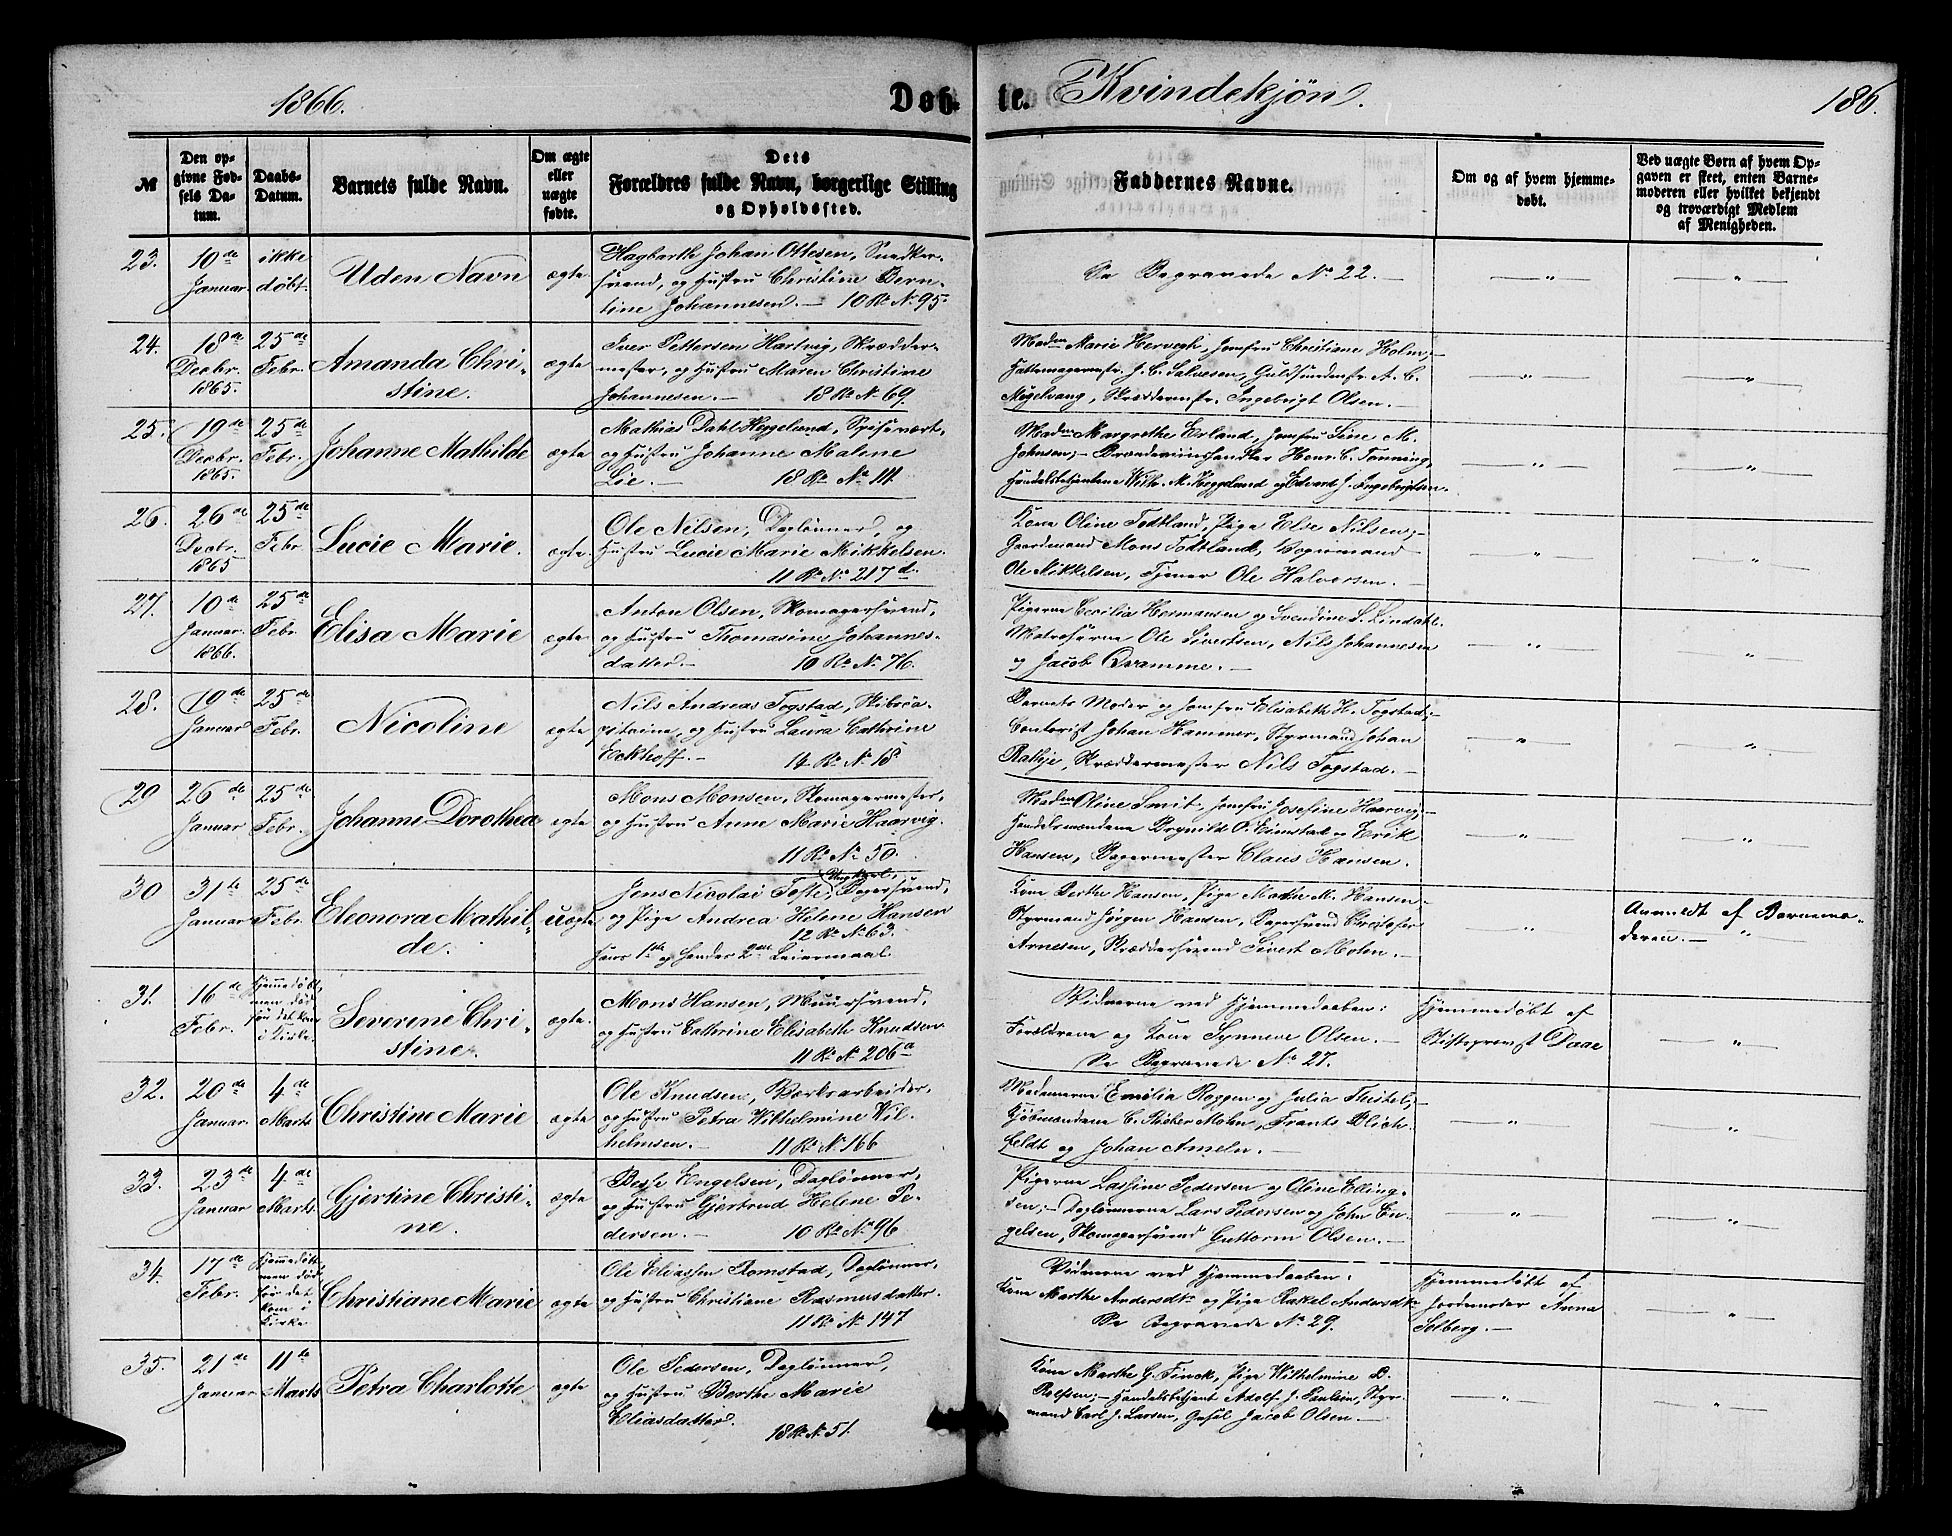 1866.
Døb-
te. Kvindekjøn.
186.
№
Den op-
givne Fød-
sels Da-
tum.
Daabs-
Datum.
Barnets fulde Navn.
Om ægte
eller
uægte
fødte.
Dets
Forældres fulde Navn, borgerlige Stilling
og Opholdssted.
Faddernes Navne.
Om og af hvem hjemme-
døbt.
Ved uægte Børn af hvem Op-
gaven er skeet, enten Barne-
moderen eller hvilket bekjendt
og troværdigt Medlem
af Menigheden.
23.
10de
Januar
ikke
døbt.
Uden Navn
ægte
Hagbarth Johan Ottesen, Snedker-
svend, og Hustru Christine Bern-
tine Johannesen. — 10 Rd. N. 95.
Se Begravede No 22. —
24.
18de
Decbr.
1865.
25de
Febr.
Amanda Chri-
stine.
ægte
Iver Pettersen Hartvig, Skrædder-
mester, og Hustru Maren Christine
Johannesen. — 18 Rd. N. 69.
Madm Marie Hervegh, Jomfru Christiane Holm, —
Hattemagermstr. J. C. Salvesen, Guldsmedmstr. A. C.
Mijelvang, Skræddermstr. Ingebrigt Olsen. —
25.
19de
Decbr.
1865.
25de
Febr.
Johanne Mathilde
ægte
Mathias Dahl Heggelund, Spisevært,
og Hustru Johanne Malene
Lie. — 18 Rd. No 111.
Madm Margrethe Erland, Jomfru Sine M.
Johnsen; — Brændeviinshandler Henr. C. Tonning,
Handelsbetjentene Wilh. M. Heggelund og Edvard J. Ingebrigtsen.
26.
26de
Decbr.
1865
25de
Febr.
Lucie Marie.
ægte
Ole Nilsen, Daglønner, og
Hustru Lucie Marie Mikkelsen.
11 Rd. No 217 d.
Kone Oline Todtland, Pige Else Nilsen; —
Gaardmand Mons Todtland, Vognmand
Ole Mikkelsen, Tjener Ole Halversen. —
27.
10de
Januar.
1866.
25de
Febr.
Elisa Marie
ægte
Anton Olsen, Skomagersvend,
og Hustru Thomasine Johannes-
datter. — 10 Rd. No 76.
Pigerne Cecilia Hermansen og Svendine S. Lindahl.
Matroserne Ole Sivertsen, Nils Johannesen
og Jacob Qvamme. —
28.
19de
Januar
25de
Febr.
Nicoline
ægte
Nils Andreas Togstad, Skibsca-
pitaine, og Hustru Laura Cathrine
Eckhoff. — 14 Rd. No 18
Barnets Moder og Jomfru Elisabeth H. Togstad; —
Contorist Johan Hammer, Styrmand Johan
Rathje, Skræddermester Nils Togstad. —
29
26de
Januar
25de
Febr.
Johanne Dorothea
ægte
Mons Monsen, Skomagermester,
og Hustru Anne Marie Haarvig.
11 Rd. No 50.
Madm Oline Smit, Jomfru Josefine Haarvig, —
Handelsmændene Brynild O. Eimstad og Erik
Hansen, Bagermester Claus Hansen.
30
31te
Januar
25de
Febr.
Eleonora Mathil-
de.
uægte
Jens Nicolai Tofte, Ungkarl, Bagersvend,
og Pige Andrea Helene Hansen
12 Rd. No 63.
Hans 1ste og Hendes 2den Leiermaal
Kone Berthe Hansen, Pige Mathe M. Hansen —
Styrmand Jørgen Hansen, Bagersvend Christofer
Arnesen, Skræddersvend Sivert Mohn. —
Anmeldt af Barnemo-
deren. —
31.
16de
Febr.
Hjemmedøbt,
men død
før det kom
i Kirke.
Severine Chri-
stine.
ægte
Mons Hansen, Muursvend,
og Hustru Cathrine Elisabeth Knudsen
11 Rd. No 206 a
Vidnerne ved Hjemmedaaben:
Forældrene og Kone Synneve Olsen. —
Se Begravede No 27.
Hjemmedøbt af
Stiftsprovst Daae
32.
20de
Januar.
4de
Marts
Christine Marie
ægte
Ole Knudsen, Værksarbeider,
og Hustru Petra Wilhelmine Wil-
helmsen. — 11 Rd. No 166
Madamerne Emilia Roggen og Julia Theitel; —
Kjøbmændene C. Stüber Mohn, Frants Blich-
feldt og Johan Ameln. —
33.
23de
Januar
4de
Marts.
Gjertine Christi-
ne.
ægte
Besse Engelsen, Daglønner,
og Hustru Gjertrud Helene Pe-
dersen. — 10 Rd. No 96
Pigerne Lassine Pedersen og Oline Elling-
sen; — Daglønnerne Lars Pedersen og John En-
gelsen, Skomagersvend Guttorm Olsen. —
34.
17de
Febr.
Hjemmedøbt
men død
før det
kom i
Kirke
Christiane Marie
ægte
Ole Eliassen Romstad, Daglønner,
og Hustru Christiane Rasmusdatter.
11 Rd. No 147
Vidnerne ved Hjemmedaaben:
Kone Marthe Andersdtr. og Pige Rakel Andersdtr.
Se Begravede No 29.
Hjemmedøbt af
Jordemoder Anna
Solberg. —
35.
21de
Januar
11te
Marts
Petra Charlotte
ægte
Ole Pedersen, Daglønner,
og Hustru Berthe Marie
Eliasdatter.
18 Rd. N. 51.
Kone Marthe G. Finck, Pige Wilhelmine B.
Rolfsen; — Handelsbetjent Adolf J. Paulsen, Styr-
mand Carl J. Larsen, Gesel Jacob Olsen. —